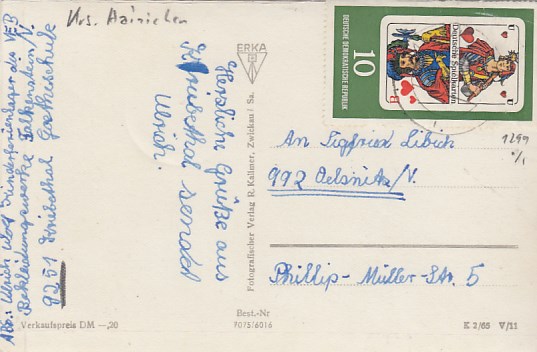 Krs. Hainichen
Abs.: Ulrich Wolf Kinderferienlager des VEB
Bekleidungswerke Falkenstein/V.
9251 Kriebethal Goetheschule
Herzliche Grüße aus
Kriebethal sendet
Ulrich!
ERKA
Fotografischer Verlag R. Kallmer, Zwickau / Sa.
DEUTSCHE DEMOKRATISCHE REPUBLIK
10
Deutsche Spielkarten
U
U
U
An Siegfried Libich
992 Oelsnitz/V.
Phillip-Müller-Str. 5
1299
Verkaufspreis DM —,20
Best.-Nr
7075/6016
K 2/65 V/11